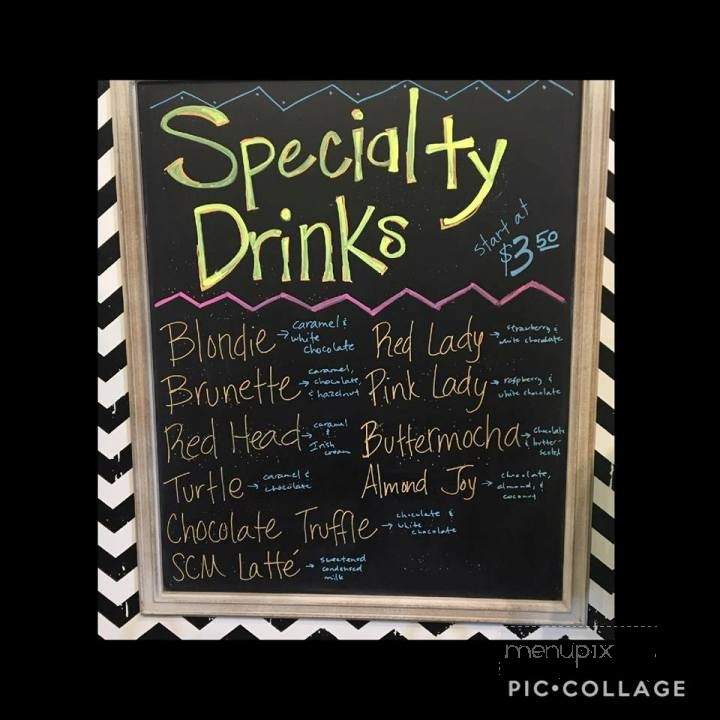 Specialty
Drinks
start at
$3.50
Blondie → caramel & white chocolate
Red Lady → strawberry & white chocolate
Brunette → caramel, chocolate, & hazelnut
Pink Lady → raspberry & white chocolate
Red Head → caramel & Irish cream
Buttermocha → chocolate & butter-scotch
Turtle → caramel & chocolate
Almond Joy → chocolate, almond, & coconut
Chocolate Truffle → chocolate & white chocolate
SCM Latté → sweetened condensed milk
menupix
PIC•COLLAGE